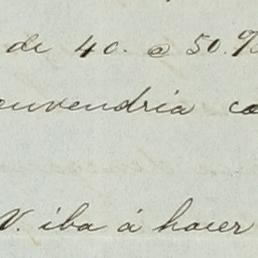 de 40. a 50.%
convendria
V. iba á hacer